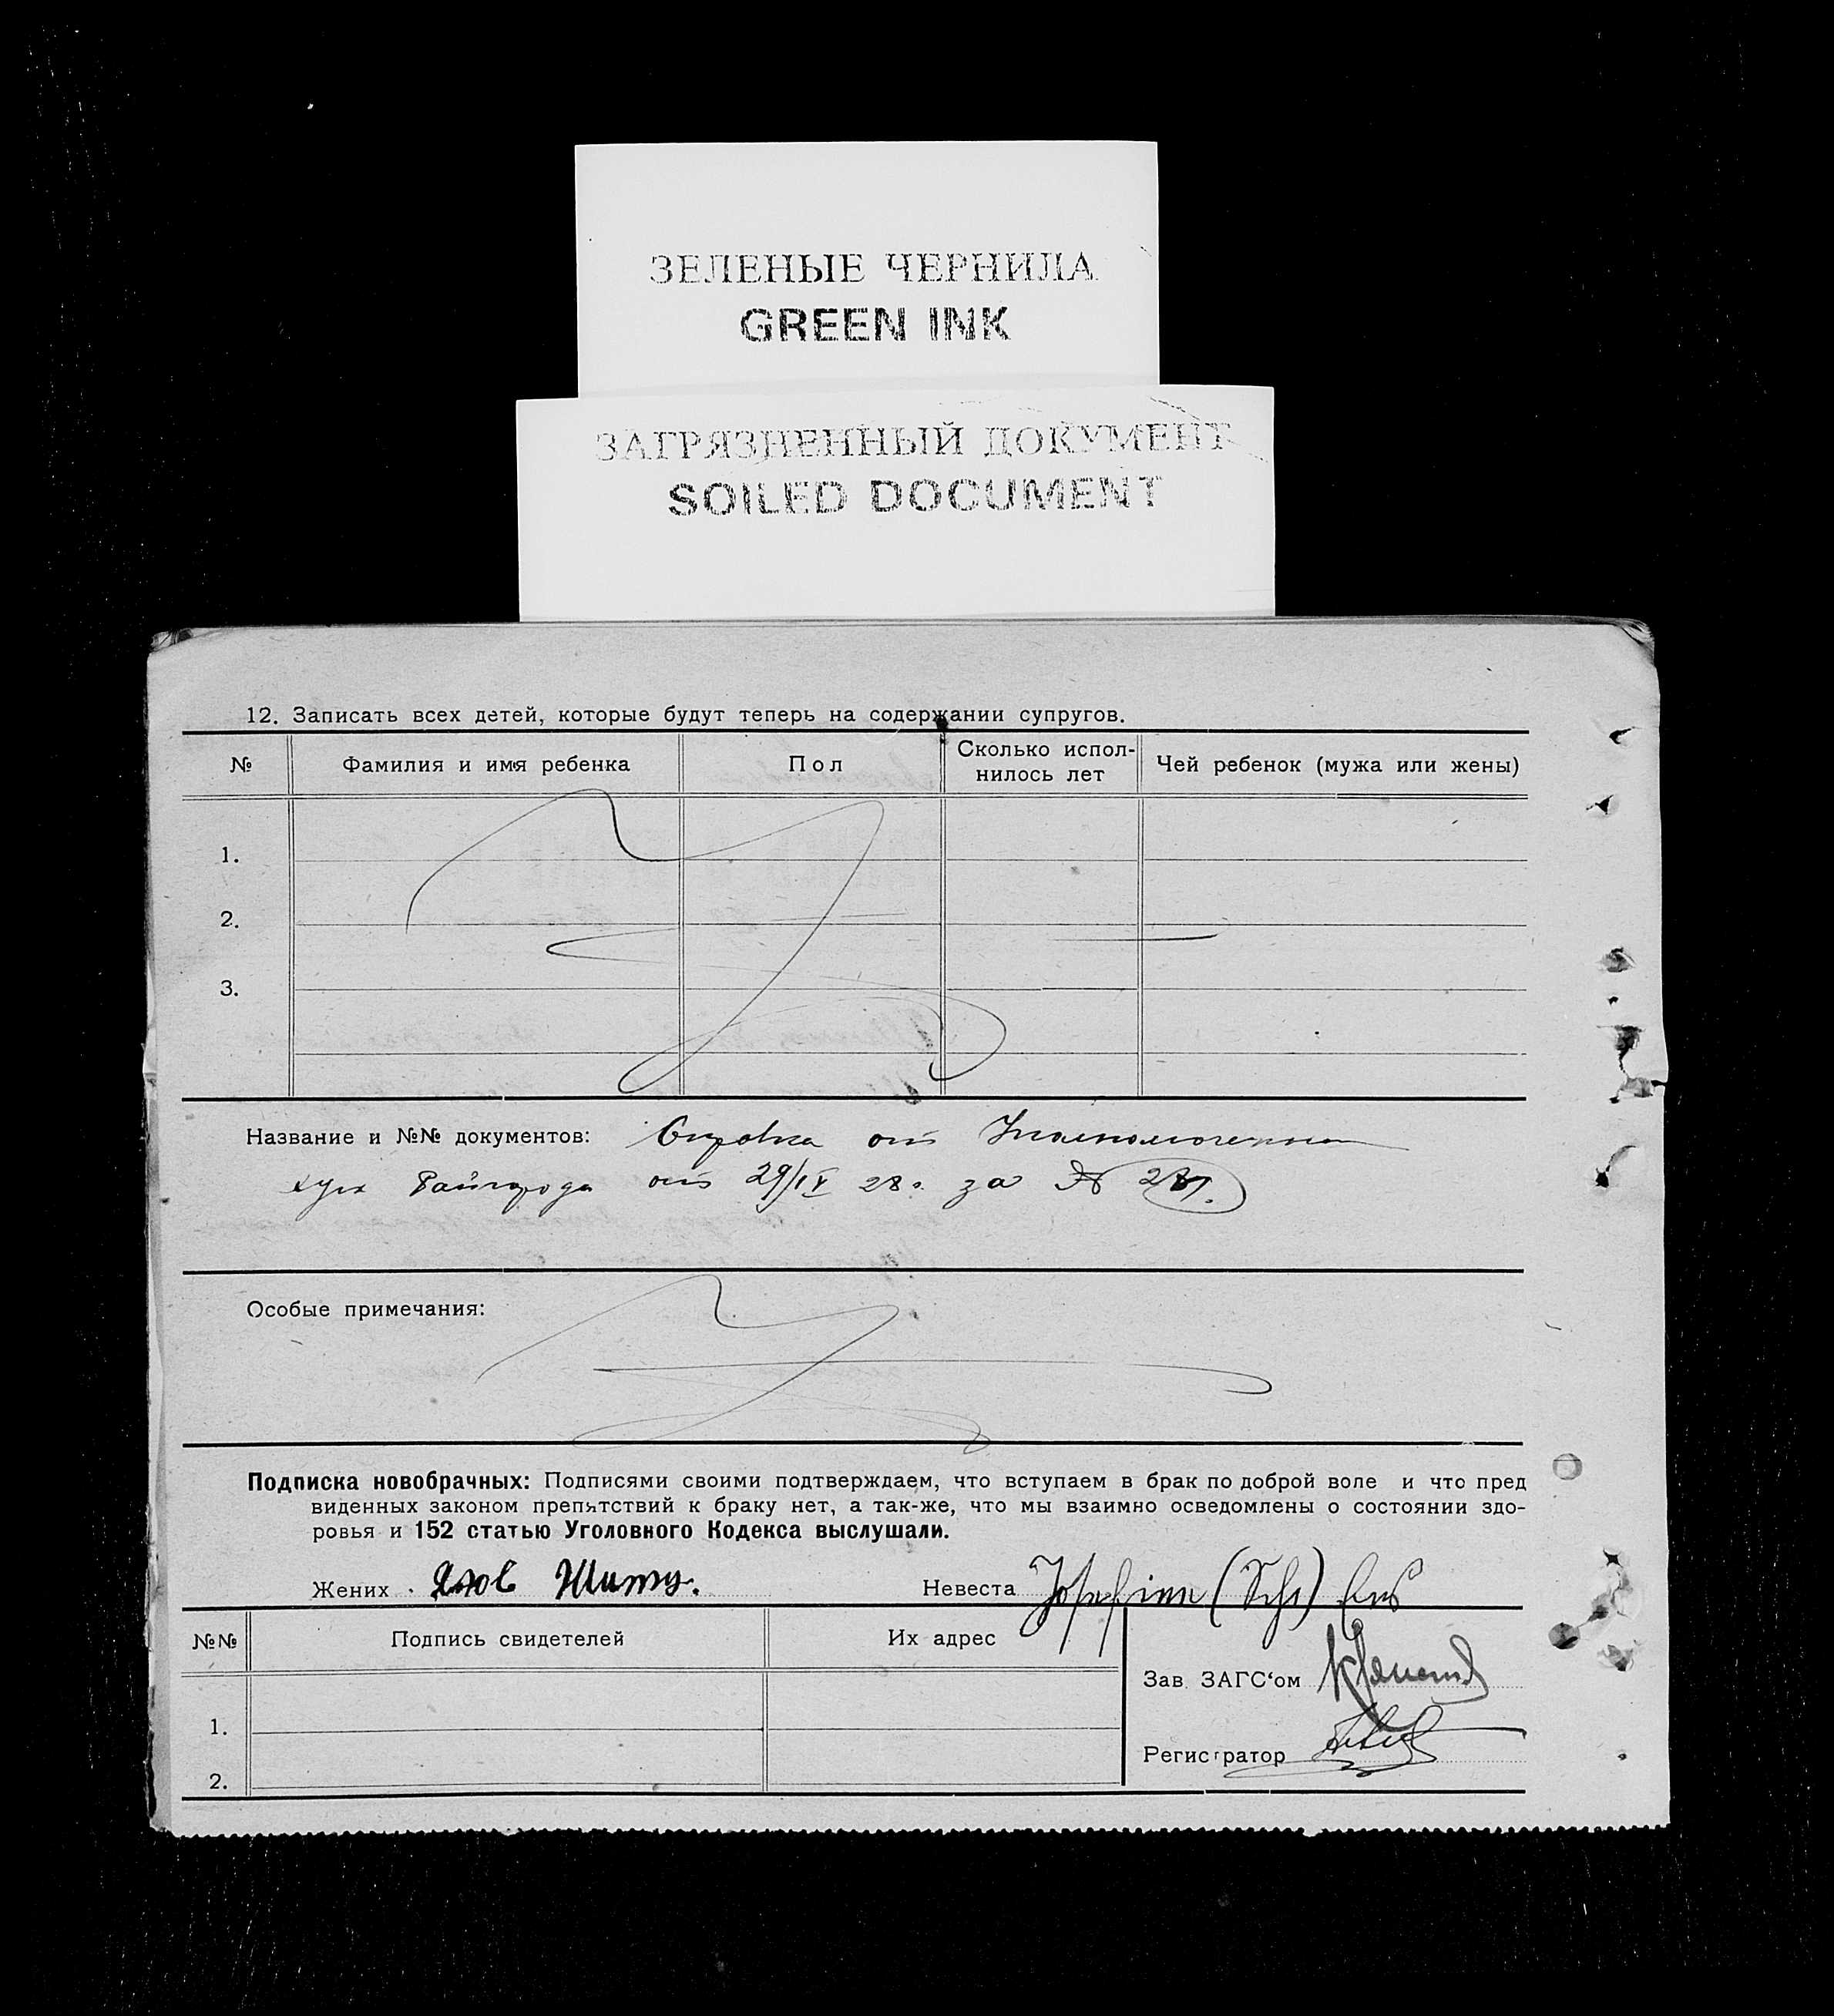 ЗЕЛЕНЫЕ ЧЕРНИЛА
GREEN INK
ЗАГРЯЗНЕННЫЙ ДОКУМЕНТ
SOILED DOCUMENT
12. Записать всех детей, которые будут теперь на содержании супругов.
№ Фамилия и имя ребенка Пол Сколько испол-нилось лет Чей ребенок (мужа или жены)
1.
2.
3.
Название и №№ документов: Справка от Уполномоченного
хут. от 29/IV 28 г. за №
Особые примечания:
Подписка новобрачных: Подписями своими подтверждаем, что вступаем в брак по доброй воле и что пред
виденных законом препятствий к браку нет, а так-же, что мы взаимно осведомлены о состоянии здо-
ровья и 152 статью Уголовного Кодекса выслушали.
Жених Яков Невеста Josefina (Sch)
№№ Подпись свидетелей Их адрес
Зав. ЗАГС'ом
1.
Регистратор
2.